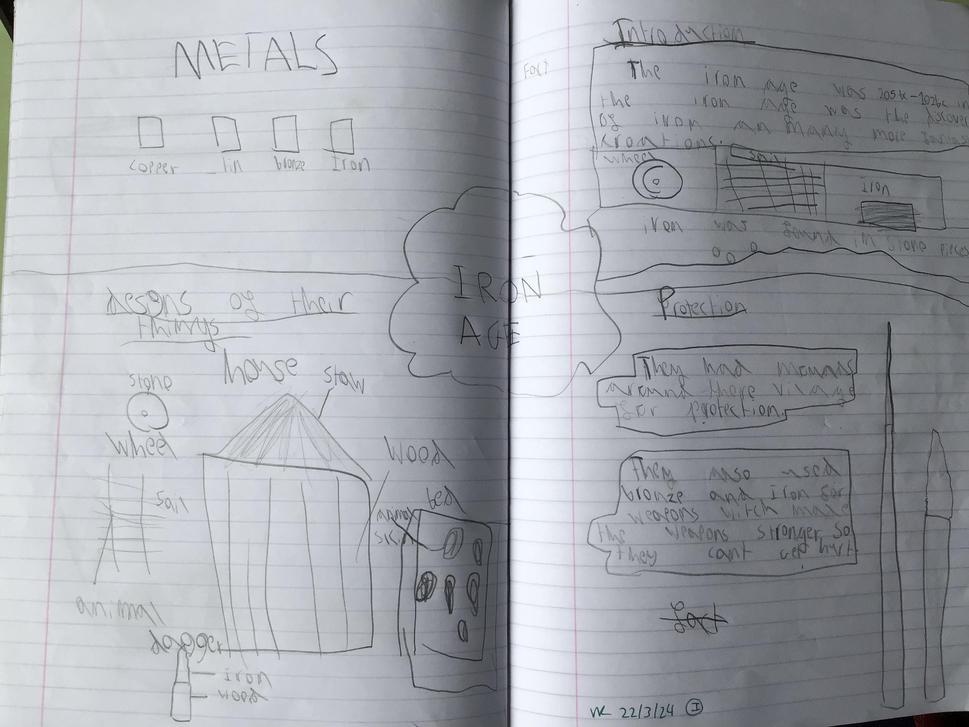 METALS
copper
Tin
bronze
Iron
IRON
AGE
desgns of their
things
house
stone
wheel
straw
wood
bed
sail
animal
skin
animal
dagger
iron
wood
Fact
Introduction
The iron age was
the iron age was the discover
of iron an many more
wheel
Iron
iron was found in stone
Protection
They had mounds
around there vilage
for protection
They also used
bronze and iron for
weapons witch made
the weapons stronger so
they cant get hurt
22/3/24 I